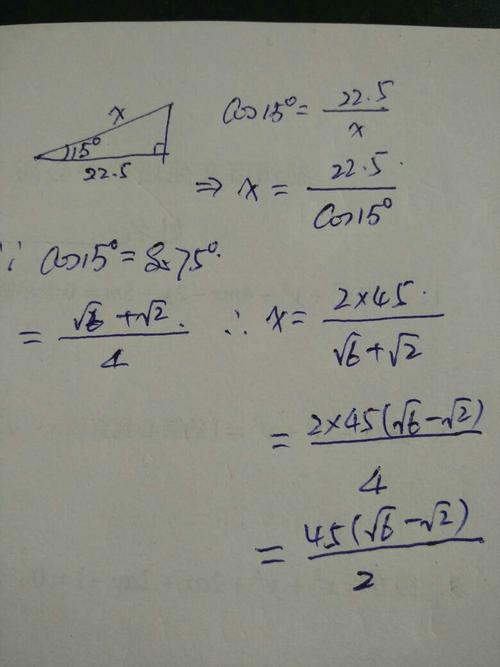 x
15°
22.5
Cos15° = 22.5/x
⇒ x = 22.5/Cos15°
∵ Cos15° = Sin75°
= (√6+√2)/4 ∴ x = 2×45/(√6+√2)
= 2×45(√6-√2)/4
= 45(√6-√2)/2